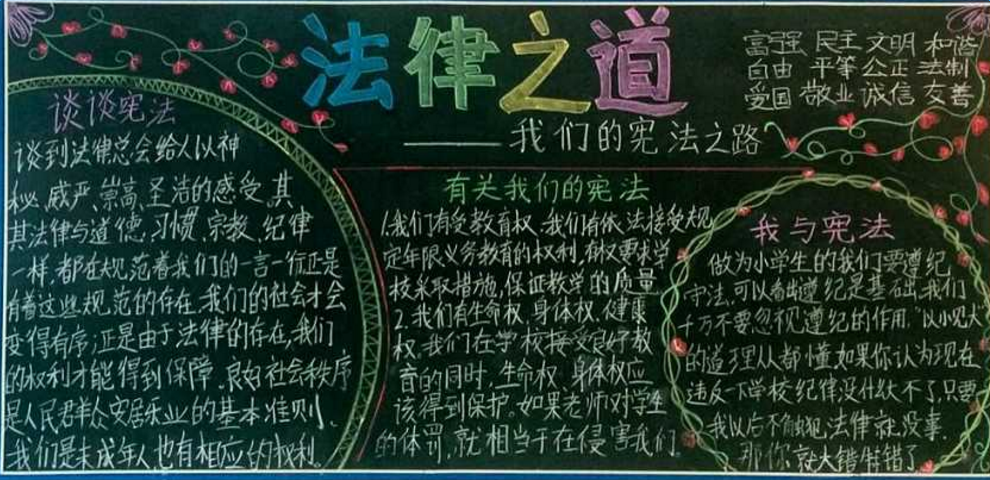 法律之道
——我们的宪法之路
富强 民主 文明 和谐
自由 平等 公正 法制
爱国 敬业 诚信 友善
谈谈宪法
谈到法律总会给人以神
秘、威严、崇高、圣洁的感受,其
其法律与道德、习惯、宗教、纪律
一样,都在规范着我们的一言一行正是
有着这些规范的存在,我们的社会才会
变得有序;正是由于法律的存在,我们
的权利才能得到保障。良好社会秩序
是人民群众安居乐业的基本准则、
我们是未成年人,也有相应的权利。
有关我们的宪法
1.我们有受教育权、我们有依法接受规
定年限义务教育的权利,有权要求学
校采取措施,保证教学的质量
2.我们有生命权、身体权、健康
权。我们在学校接受良好教
育的同时,生命权、身体权应
该得到保护。如果老师对学生
的体罚,就相当于在侵害我们。
我与宪法
做为小学生的我们要遵纪
守法,可以看出遵纪是基础,我们
千万不要忽视遵纪的作用,“以小见大
的道理人人都懂,如果你认为现在
违反一下学校纪律没什么大不了,只要
我以后不触犯法律就没事.
那你就大错特错了